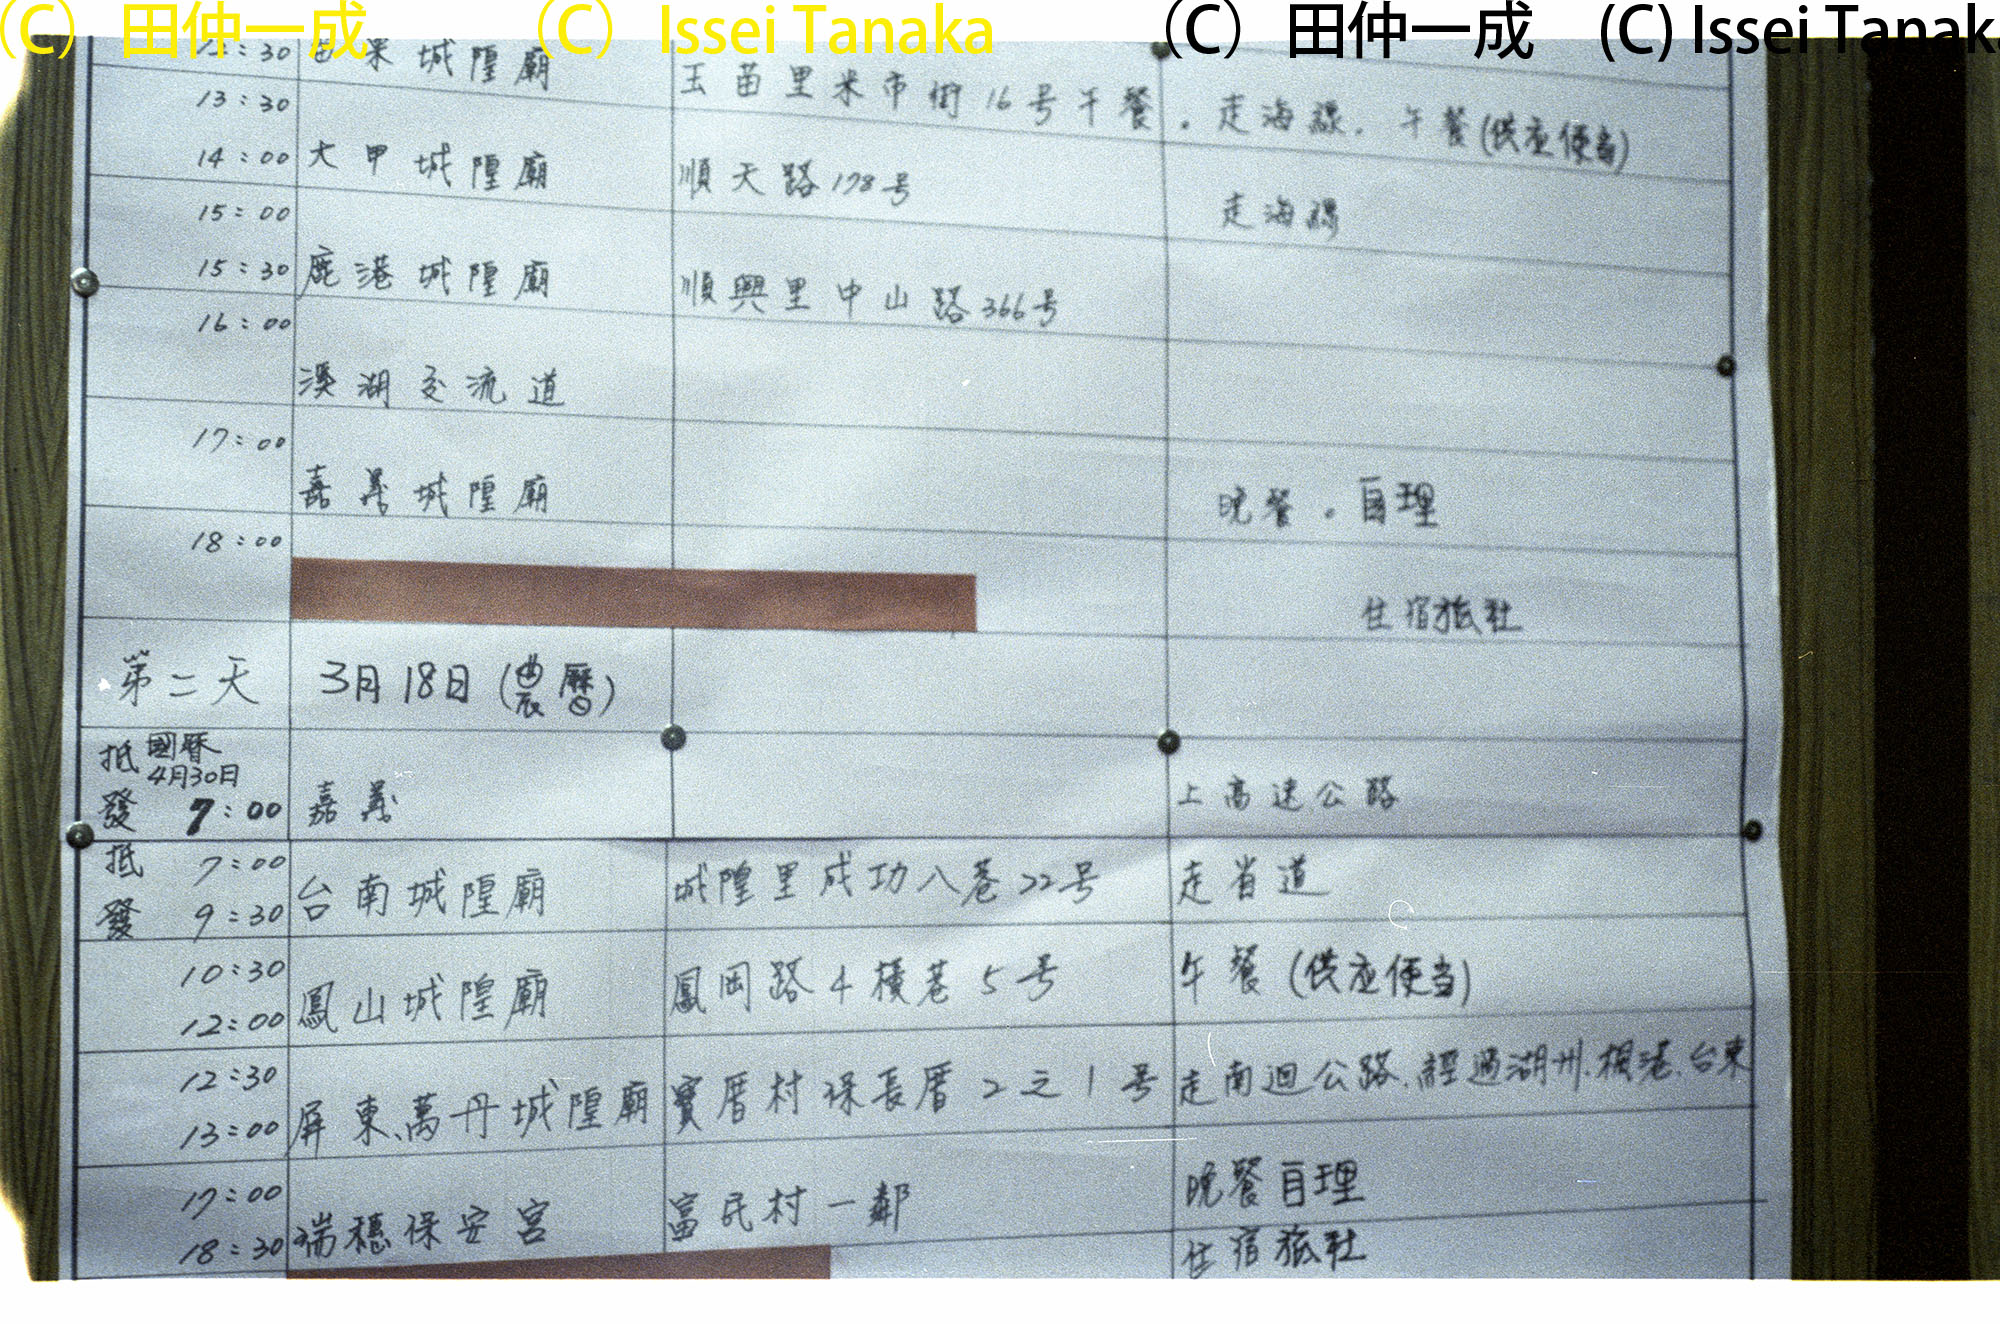 (C) 田仲一成 (C) Issei Tanaka (C) 田仲一成 (C) Issei Tanaka
12:30 苗栗城隍廟 玉苗里米市街16号午餐。走海線. 午餐(供应便当)
13:30
14:00 大甲城隍廟 順天路178号 走海線
15:00
15:30 鹿港城隍廟 順興里中山路366号
16:00
溪湖交流道
17:00
嘉義城隍廟 晚餐。自理
18:00
住宿旅社
第二天 3月18日(農曆)
抵 國曆
4月30日
發 7:00 嘉義 上高速公路
抵 7:00 台南城隍廟 城隍里成功八巷22号 走省道
發 9:30
10:30 鳳山城隍廟 鳳岡路4横巷5号 午餐(供应便当)
12:00
12:30 屏東、萬丹城隍廟 寶厝村保長厝2之1号 走南迴公路、經過湖州.楓港.台東
13:00
17:00 瑞穗保安宮 富民村一鄰 晚餐自理
18:30 住宿旅社